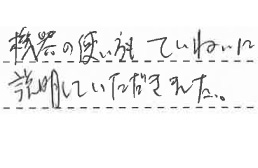 機器の使い方も ていねいに
説明していただきました。